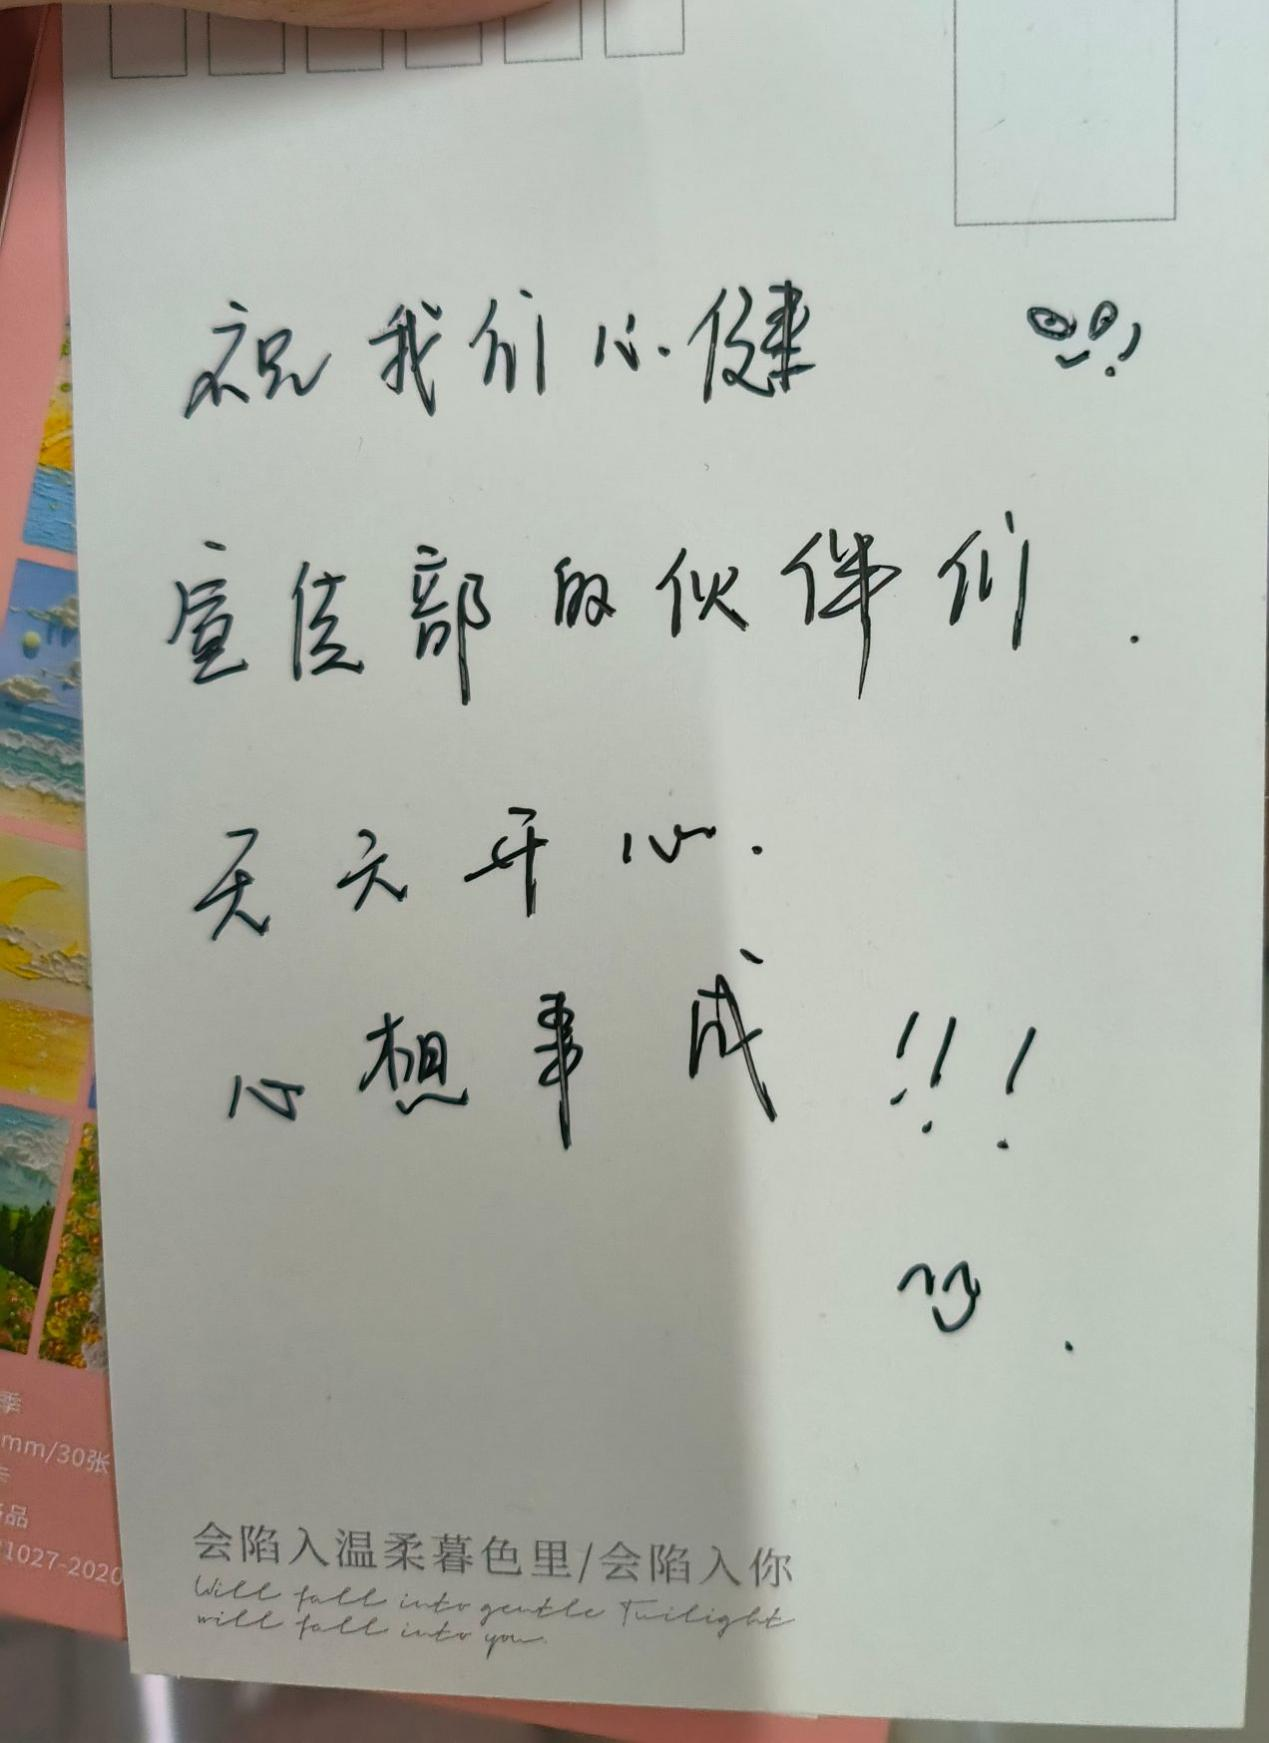 祝我们心健
宣传部的伙伴们.
天天开心.
心想事成!!!
会陷入温柔暮色里/会陷入你
Will fall into gentle Twilight
will fall into you.
季
mm/30张
卡
品
1027-2020